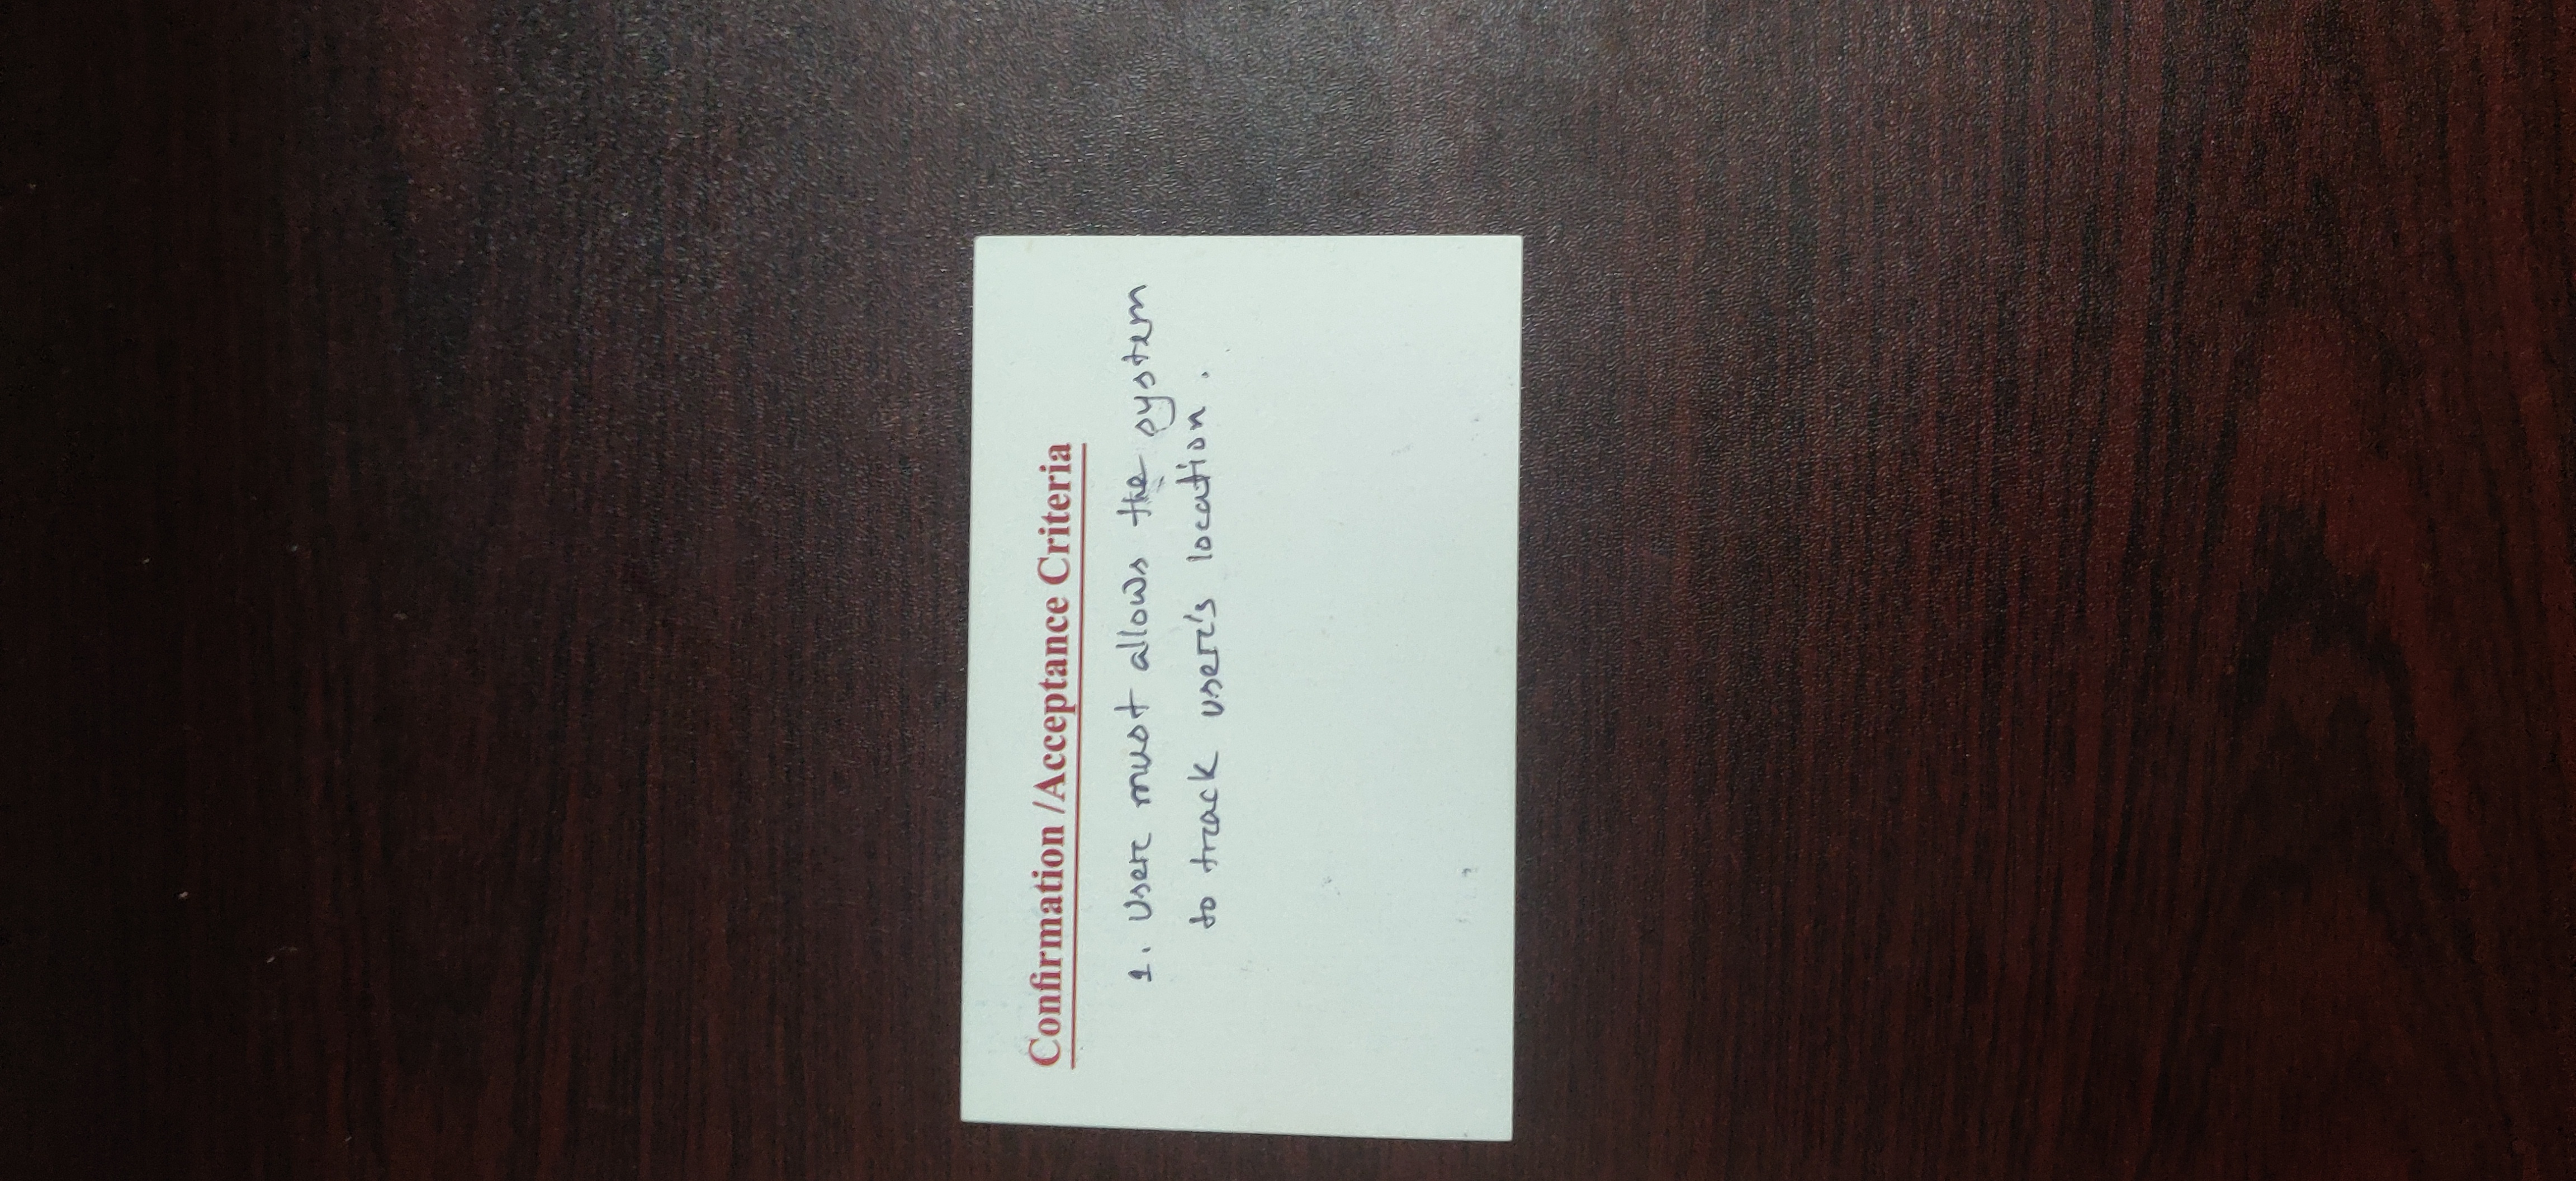 Confirmation /Acceptance Criteria
1. User must allows the system
to track user's location.